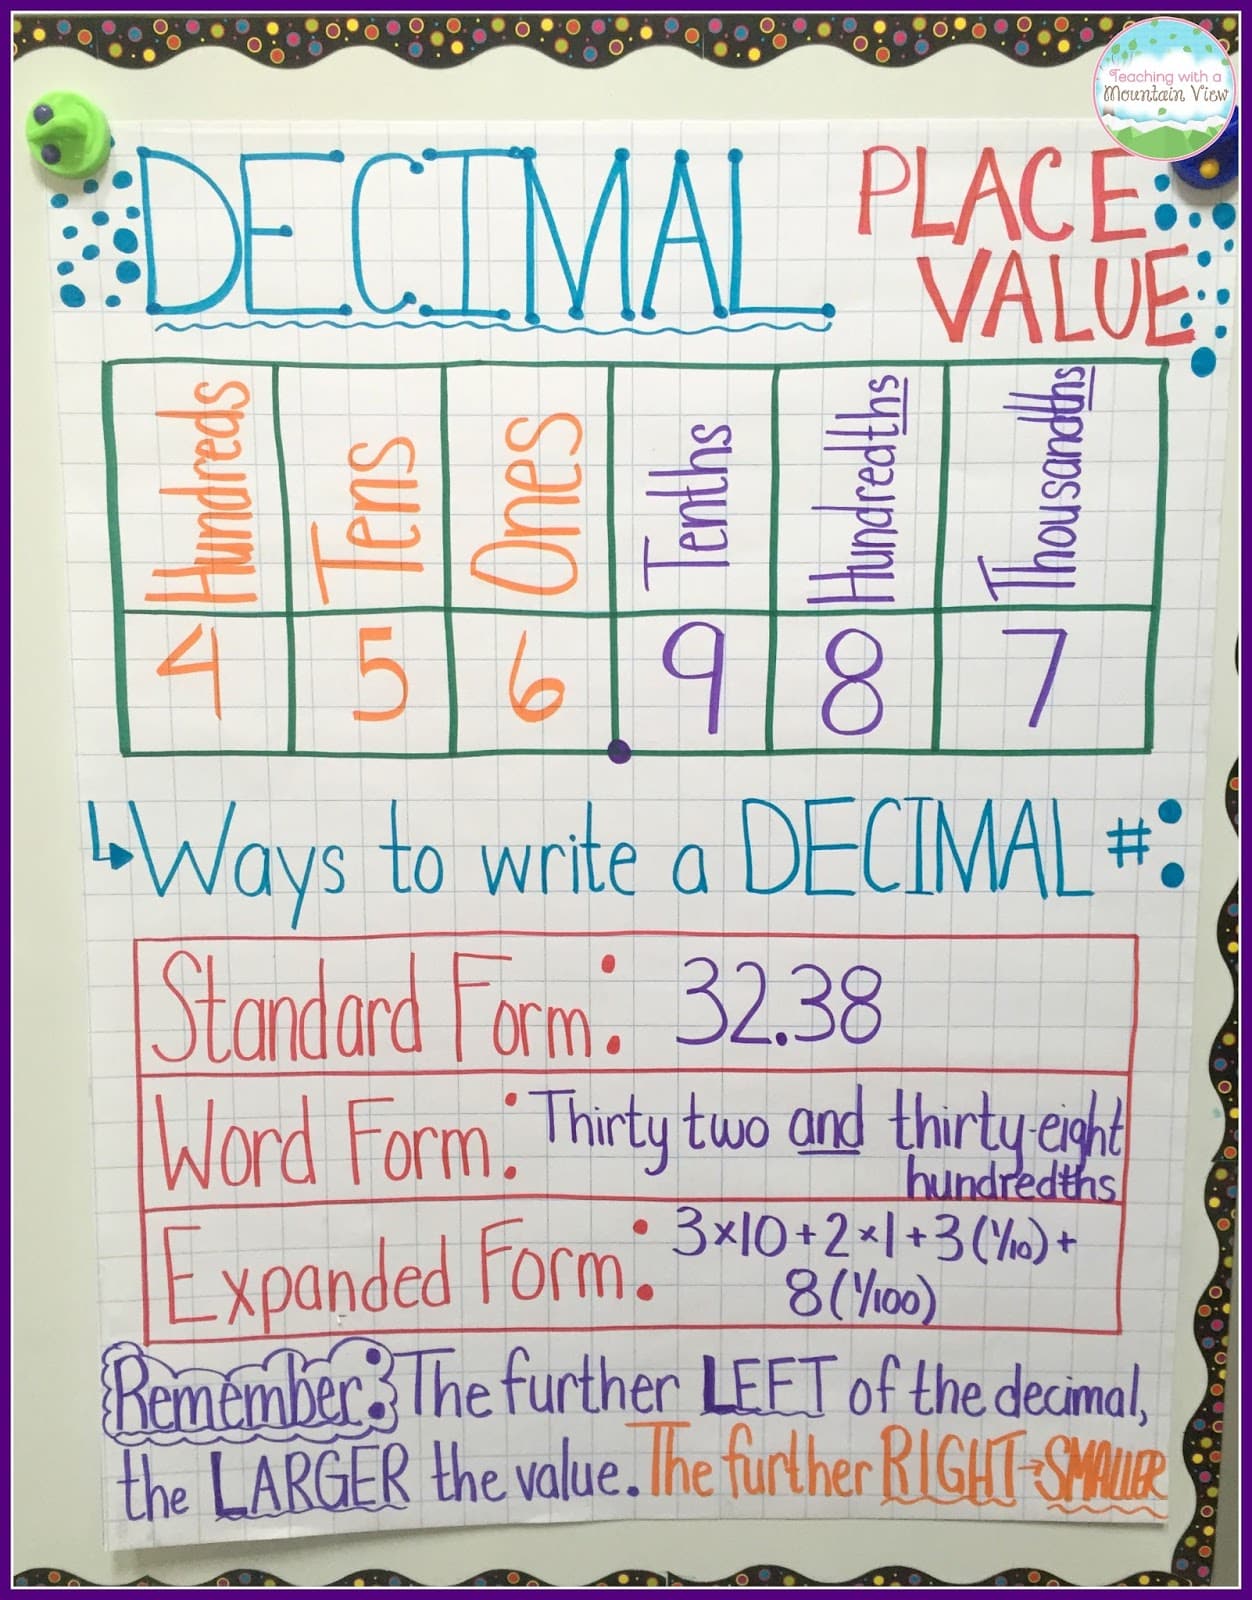 Teaching with a
Mountain View
DECIMAL PLACE
VALUE
Hundreds Tens Ones Tenths Hundredths Thousandths
4 5 6 . 9 8 7
Ways to write a DECIMAL #:
Standard Form: 32.38
Word Form: Thirty two and thirty-eight
hundredths
Expanded Form: 3×10+2×1+3(1/10)+
8(1/100)
Remember: The further LEFT of the decimal,
the LARGER the value. The further RIGHT→SMALLER